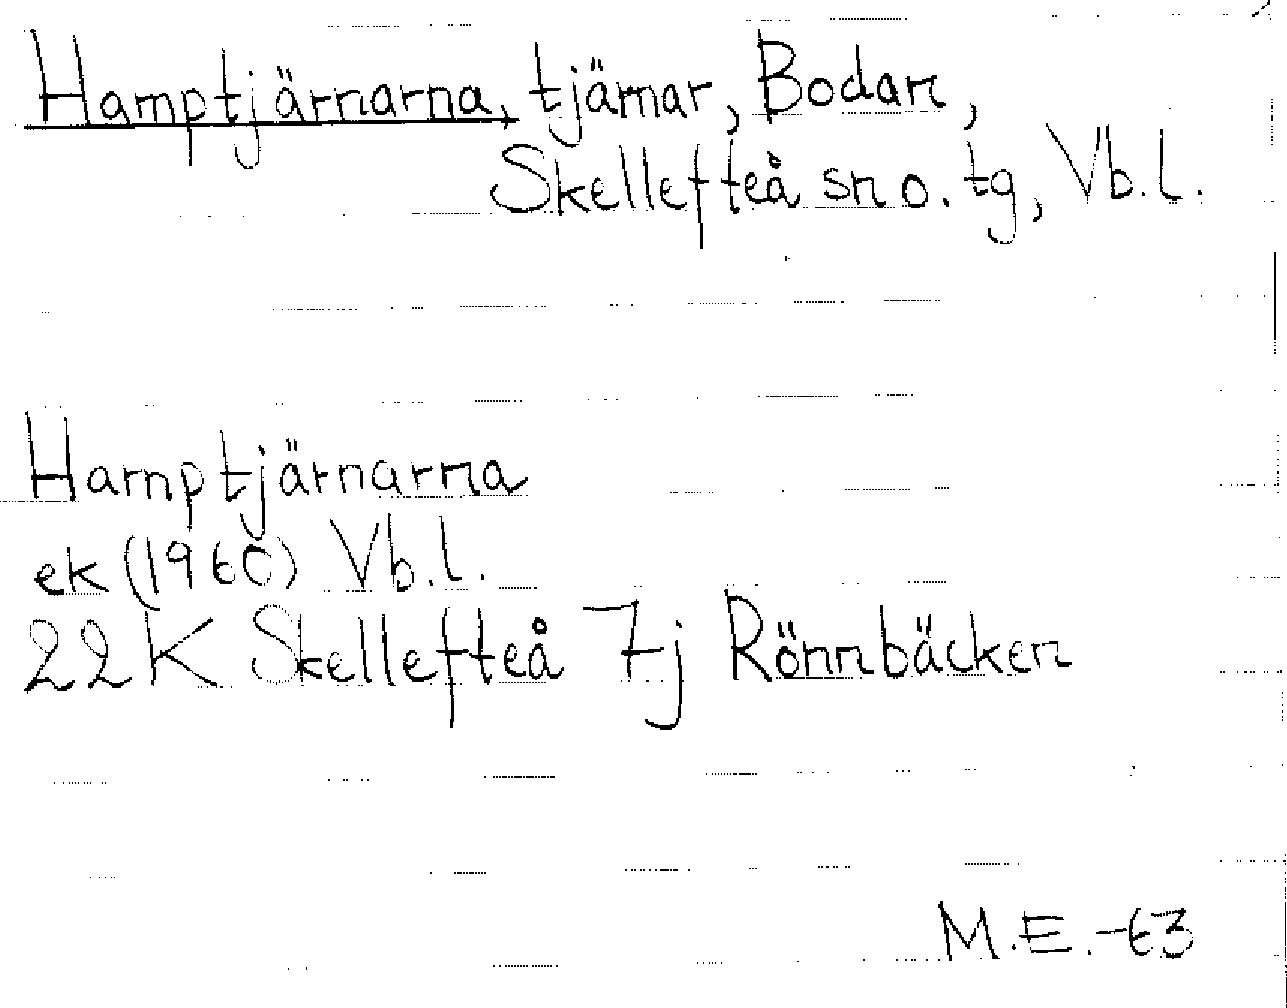 Hamptjärnarna, tjärnar, Bodan,
Skellefteå sn o. tg, Vb.l.
Hamptjärnarna
ek (1960) Vb.l.
22K Skellefteå 7j Rönnbäcken
M.E.-63